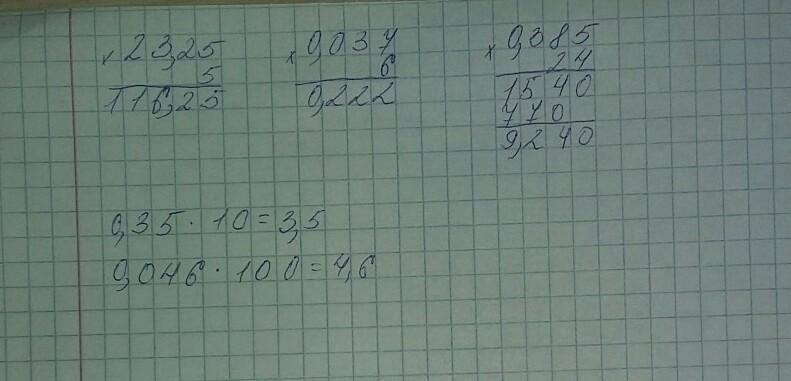 × 23,25
5
116,25
× 0,037
6
0,222
× 0,385
24
1540
770
9,240
0,35 · 10 = 3,5
0,046 · 100 = 4,6